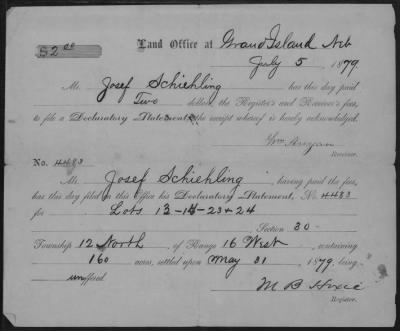 $2.00
Land Office at Grand Island Neb
July 5, 1879
Mr. Josef Schiehling has this day paid
Two dollars, the Register's and Receiver's fees,
to file a Declaratory Statement, the receipt whereof is hereby acknowledged.
Wm Anyan
Receiver.
No. 4483
Mr. Josef Schiehling, having paid the fees,
has this day filed in this Office his Declaratory Statement, No. 4483
for Lots 13-14-23+24
Section 30
Township 12 North, of Range 16 West, containing
160 acres, settled upon May 31, 1879, being
unoffered.
M B
Register.